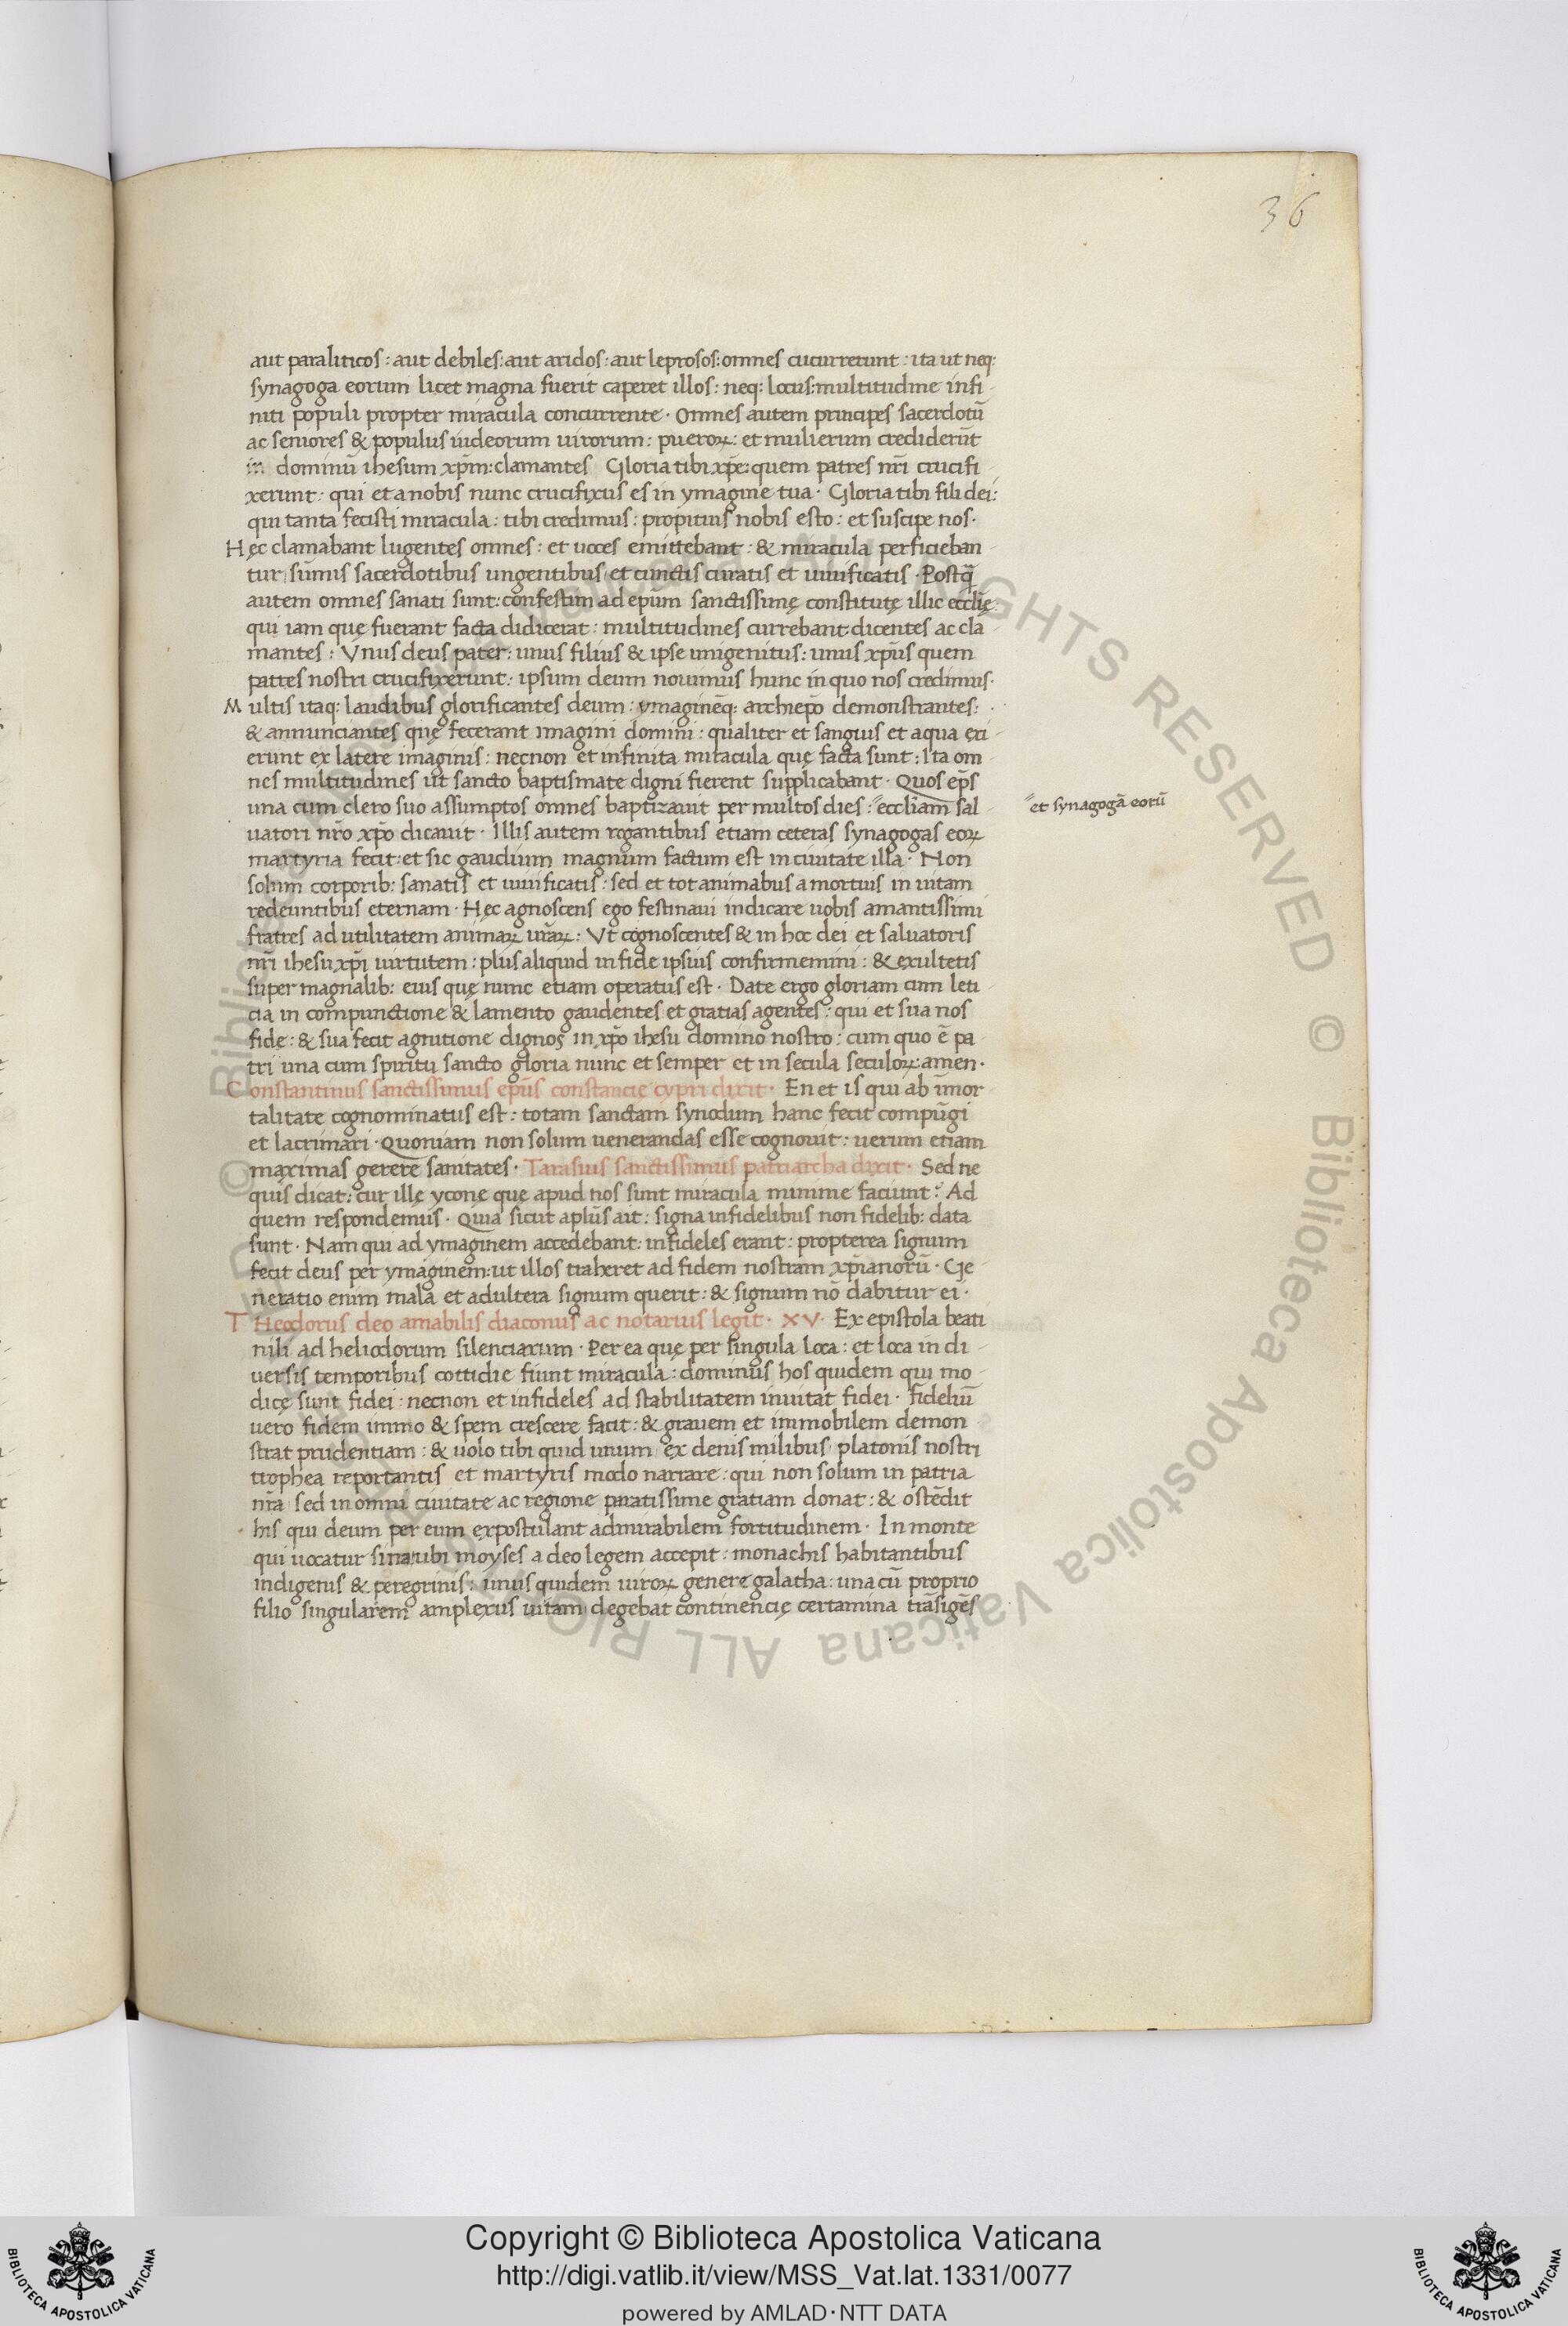 36
aut paraliticos : aut debiles : aut aridos : aut leprosos : omnes cucurrerunt : ita ut neq:
synagoga eorum licet magna fuerit caperet illos : neq: locus : multitudine infi-
niti populi propter miracula concurrente · Omnes autem principes sacerdotū
ac seniores & populus iudeorum uirorum : pueroꝝ : et mulierum crediderūt
in dominū ihesum xp̄m : clamantes Gloria tibi xp̄e : quem patres nr̄i crucifi-
xerunt : qui et a nobis nunc crucifixus es in ymagine tua · Gloria tibi fili dei :
qui tanta fecisti miracula : tibi credimus : propitius nobis esto : et suscipe nos ·
Hęc clamabant lugentes omnes : et uoces emittebant : & miracula perficieban-
tur sūmis sacerdotibus ungentibus et cunctis curatis et uiuificatis · Postq̄
autem omnes sanati sunt : confestim ad ep̄um sanctissimę constitutę illic eccl̄ię
qui iam quę fuerant facta didicerat : multitudines currebant dicentes ac cla-
mantes : Vnus deus pater : unus filius & ipse unigenitus : unus xp̄us quem
patres nostri crucifixerunt : ipsum deum nouimus hunc in quo nos credimus ·
Multis itaq: laudibus glorificantes deum : ymaginēq: archiep̄o demonstrantes :
& annunciantes quę fecerant imagini domini : qualiter et sanguis et aqua exi-
erunt ex latere imaginis : necnon et infinita miracula quę facta sunt : Ita om-
nes multitudines ut sancto baptismate digni fierent supplicabant · Quos ep̄s
una cum clero suo assumptos omnes baptizauit per multos dies : ״eccl̄iam sal-
״et synagogā eorū
uatori nr̄o xp̄o dicauit · Illis autem rogantibus etiam ceteras synagogas eoꝝ
martyria fecit : et sic gaudium magnum factum est in ciuitate illa · Non
solum corporib: sanatis et uiuificatis : sed et tot animabus a mortuis in uitam
redeuntibus eternam · Hęc agnoscens ego festinaui indicare uobis amantissimi
fratres ad utilitatem animaꝝ ur̄aꝝ : Vt cognoscentes & in hoc dei et saluatoris
nr̄i ihesu xp̄i uirtutem : plus aliquid in fide ipsius confirmemini : & exultetis
super magnalib: eius quę nunc etiam operatus est · Date ergo gloriam cum leti-
cia in compunctione & lamento gaudentes et gratias agentes : qui et sua nos
fide : & sua fecit agnitione dignos in xp̄o ihesu domino nostro : cum quo ē pa-
tri una cum spiritu sancto gloria nunc et semper et in secula seculoꝝ amen ·
Constantinus sanctissimus ep̄us constancie cypri dixit · En et is qui ab īmor-
talitate cognominatus est : totam sanctam synodum hanc fecit compūgi
et lacrimari · Quoniam non solum uenerandas esse cognouit : uerum etiam
maximas gerere sanitates · Tarasius sanctissimus patriarcha dixit · Sed ne
quis dicat : cur illę ycone quę apud nos sunt miracula minime faciunt ? Ad
quem respondemus · Quia sicut apl̄us ait : signa infidelibus non fidelib: data
sunt · Nam qui ad ymaginem accedebant : infideles erant : propterea signum
fecit deus per ymaginem : ut illos traheret ad fidem nostram xp̄ianorū · Ge-
neratio enim mala et adultera signum querit : & signum nō dabitur ei ·
THeodorus deo amabilis diaconus ac notarius legit · XV · Ex epistola beati
nili ad heliodorum silenciarum · Per ea quę per singula loca : et loca in di-
uersis temporibus cottidie fiunt miracula : dominus hos quidem qui mo-
dicę sunt fidei : necnon et infideles ad stabilitatem inuitat fidei · Fideliū
uero fidem immo & spem crescere facit : & grauem et immobilem demon-
strat prudentiam : & uolo tibi quid unum ex denis milibus platonis nostri
trophea reportantis et martyris modo narrare : qui non solum in patria
nr̄a sed in omni ciuitate ac regione paratissime gratiam donat : & ostēdit
his qui deum per eum expostulant admirabilem fortitudinem · In monte
qui uocatur sina : ubi moyses a deo legem accepit : monachis habitantibus
indigenis & peregrinis : unus quidem uiroꝝ genere galatha : una cū proprio
filio singularem amplexus uitam degebat continencię certamina trāsigēs
© Biblioteca Apostolica Vaticana ALL RIGHTS RESERVED © Biblioteca Apostolica Vaticana ALL RIGHTS RESERVED
Copyright © Biblioteca Apostolica Vaticana
http://digi.vatlib.it/view/MSS_Vat.lat.1331/0077
powered by AMLAD·NTT DATA
BIBLIOTECA APOSTOLICA VATICANA
BIBLIOTECA APOSTOLICA VATICANA